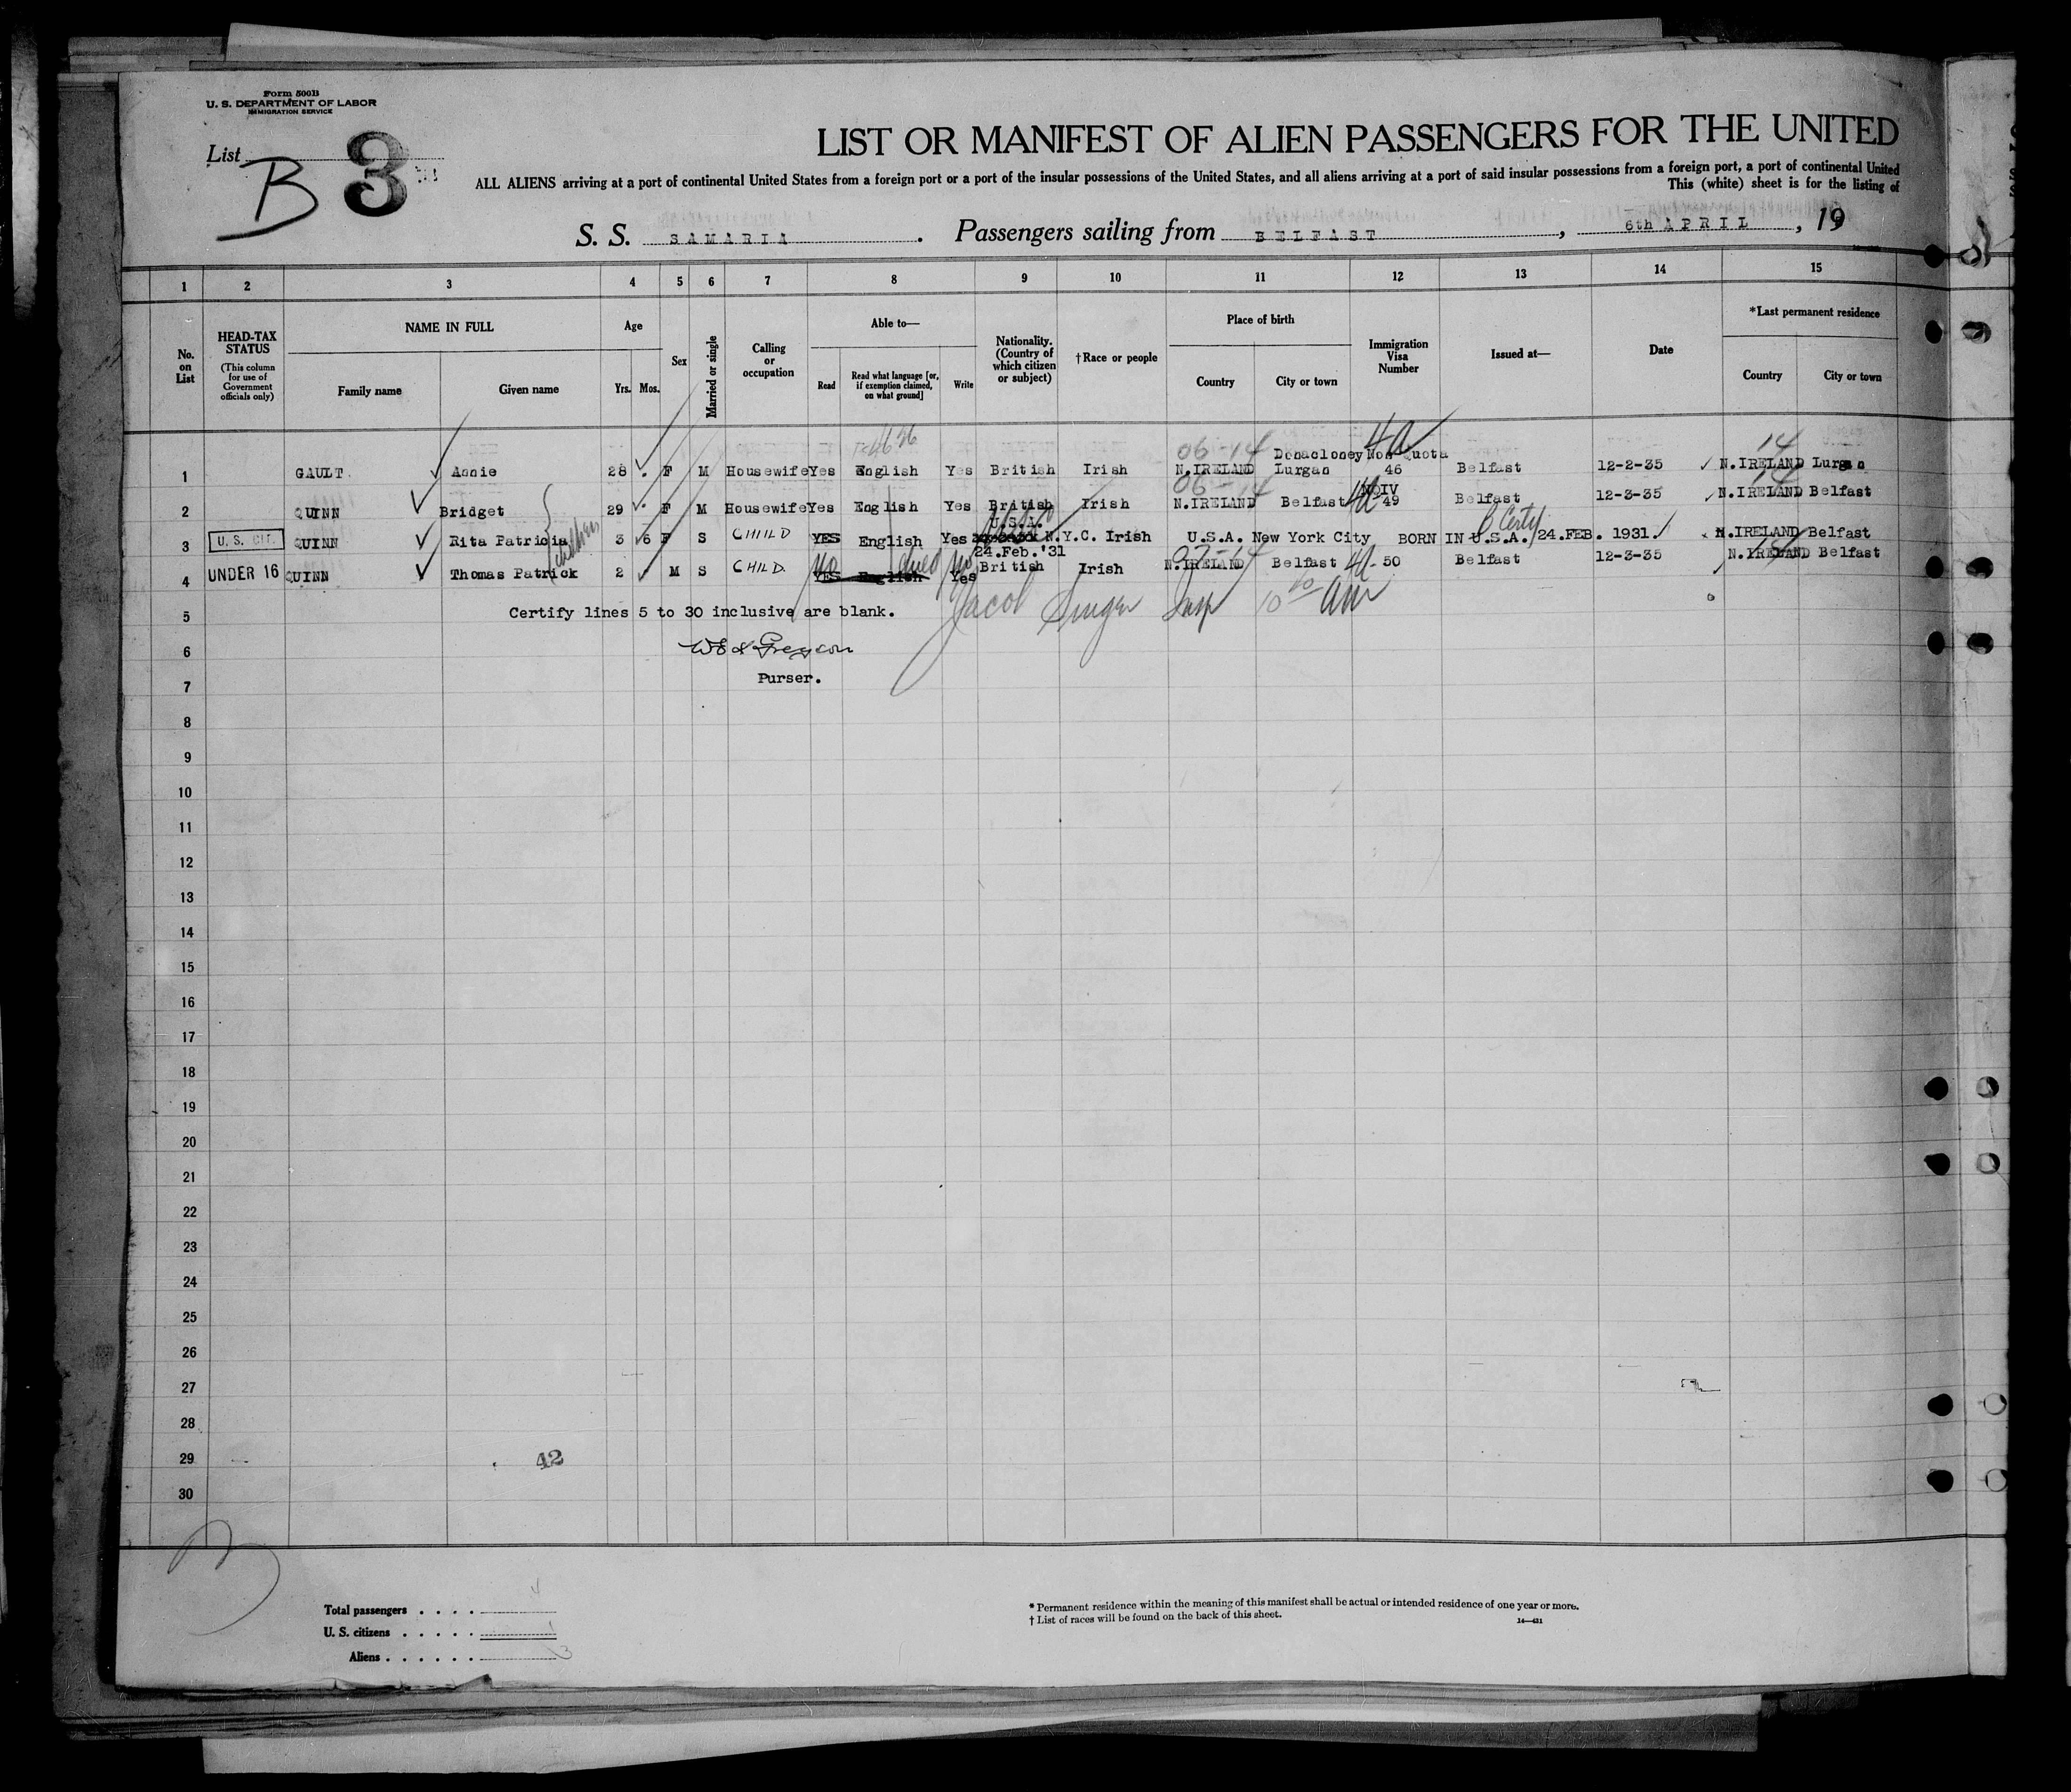 Form 500B
U. S. DEPARTMENT OF LABOR
IMMIGRATION SERVICE
List B 3
LIST OR MANIFEST OF ALIEN PASSENGERS FOR THE UNITED
ALL ALIENS arriving at a port of continental United States from a foreign port or a port of the insular possessions of the United States, and all aliens arriving at a port of said insular possessions from a foreign port, a port of continental United
This (white) sheet is for the listing of
S. S. SAMARIA . Passengers sailing from BELFAST , 6th APRIL , 19
1 2 3 4 5 6 7 8 9 10 11 12 13 14 15
No. on List
HEAD-TAX STATUS (This column for use of Government officials only)
NAME IN FULL
Family name Given name
Age
Yrs. Mos.
Sex
Married or single
Calling or occupation
Able to—
Read Read what language [or, if exemption claimed, on what ground] Write
Nationality. (Country of which citizen or subject)
†Race or people
Place of birth
Country City or town
Immigration Visa Number
Issued at—
Date
*Last permanent residence
Country City or town
06-14 Donacloney Non Quota 4a 14
1 GAULT Annie 28 F M Housewife Yes English Yes British Irish N.IRELAND Lurgan 46 Belfast 12-2-35 N.IRELAND Lurgan
06-14 NQIV 14
2 QUINN Bridget 29 F M Housewife Yes English Yes British Irish N.IRELAND Belfast 4a 49 Belfast 12-3-35 N.IRELAND Belfast
U.S.A. B Certf
3 U. S. CIT. QUINN Rita Patricia children 3 6 F S CHILD YES English Yes N.Y.C. Irish U.S.A. New York City BORN IN U.S.A. 24.FEB. 1931 N.IRELAND Belfast
24.Feb.'31
no no 07-14 14
4 UNDER 16 QUINN Thomas Patrick 2 M S CHILD YES English Yes British Irish N.IRELAND Belfast 4a 50 Belfast 12-3-35 N.IRELAND Belfast
5 Certify lines 5 to 30 inclusive are blank. Jacob Singer Insp 10 am
6
7 Purser.
8
9
10
11
12
13
14
15
16
17
18
19
20
21
22
23
24
25
26
27
28
29 42
30
Total passengers . . . . 4
U. S. citizens . . . . . 1
Aliens . . . . . . 3
* Permanent residence within the meaning of this manifest shall be actual or intended residence of one year or more.
† List of races will be found on the back of this sheet.
14—431